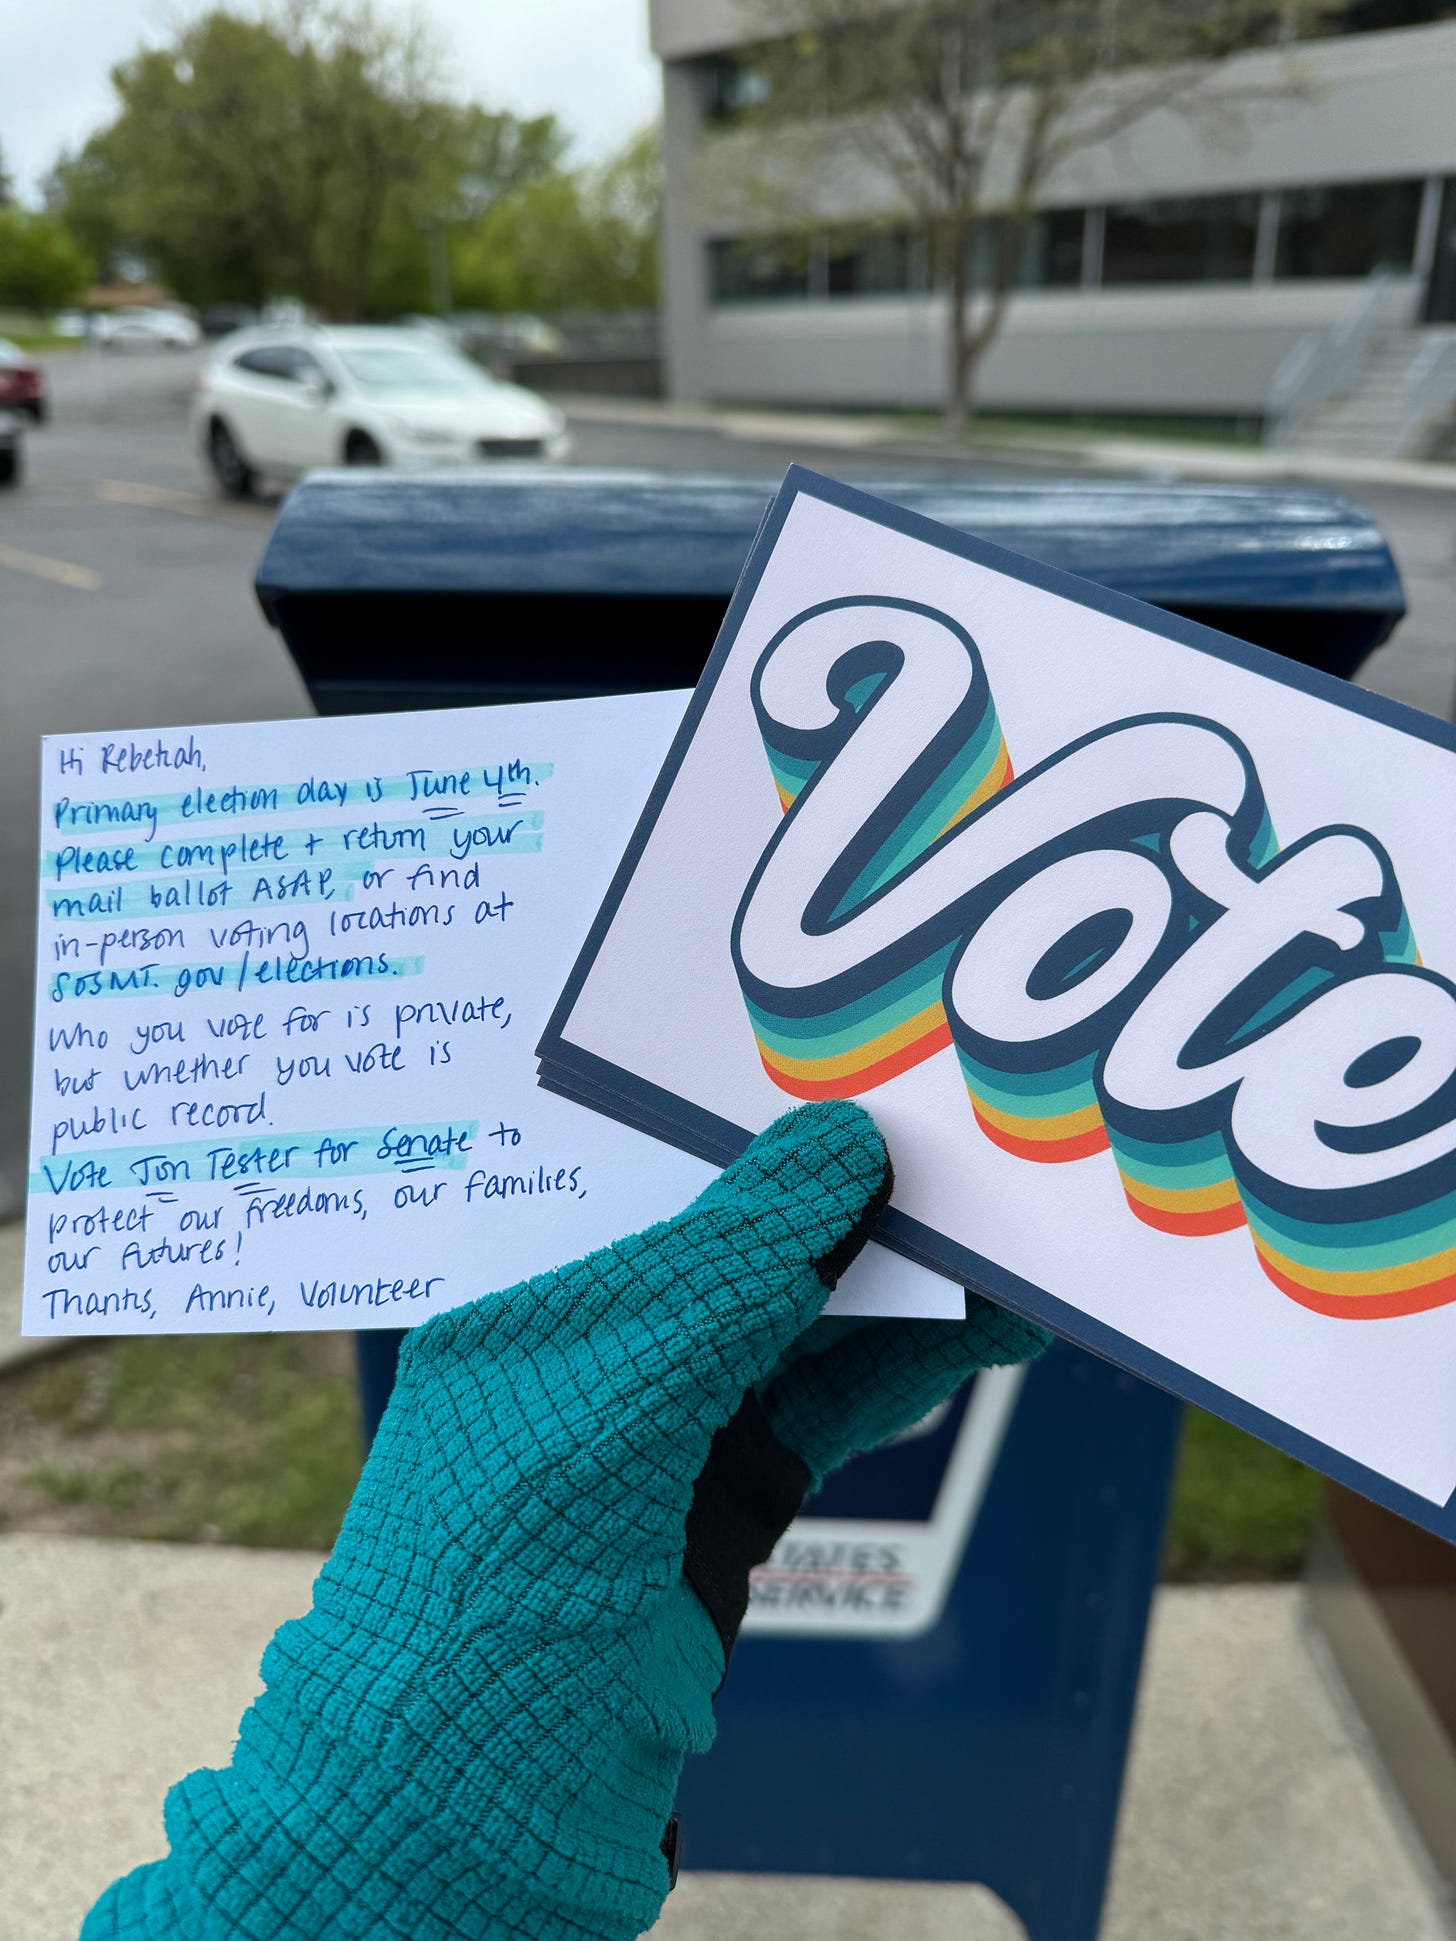 Hi Rebekah,
Primary election day is June 4th.
Please complete + return your
mail ballot ASAP, or find
in-person voting locations at
SOSMT.gov/elections.
Who you vote for is private,
but whether you vote is
public record.
Vote Jon Tester for Senate to
protect our freedoms, our families,
our futures!
Thanks, Annie, Volunteer
Vote
TATES
SERVICE